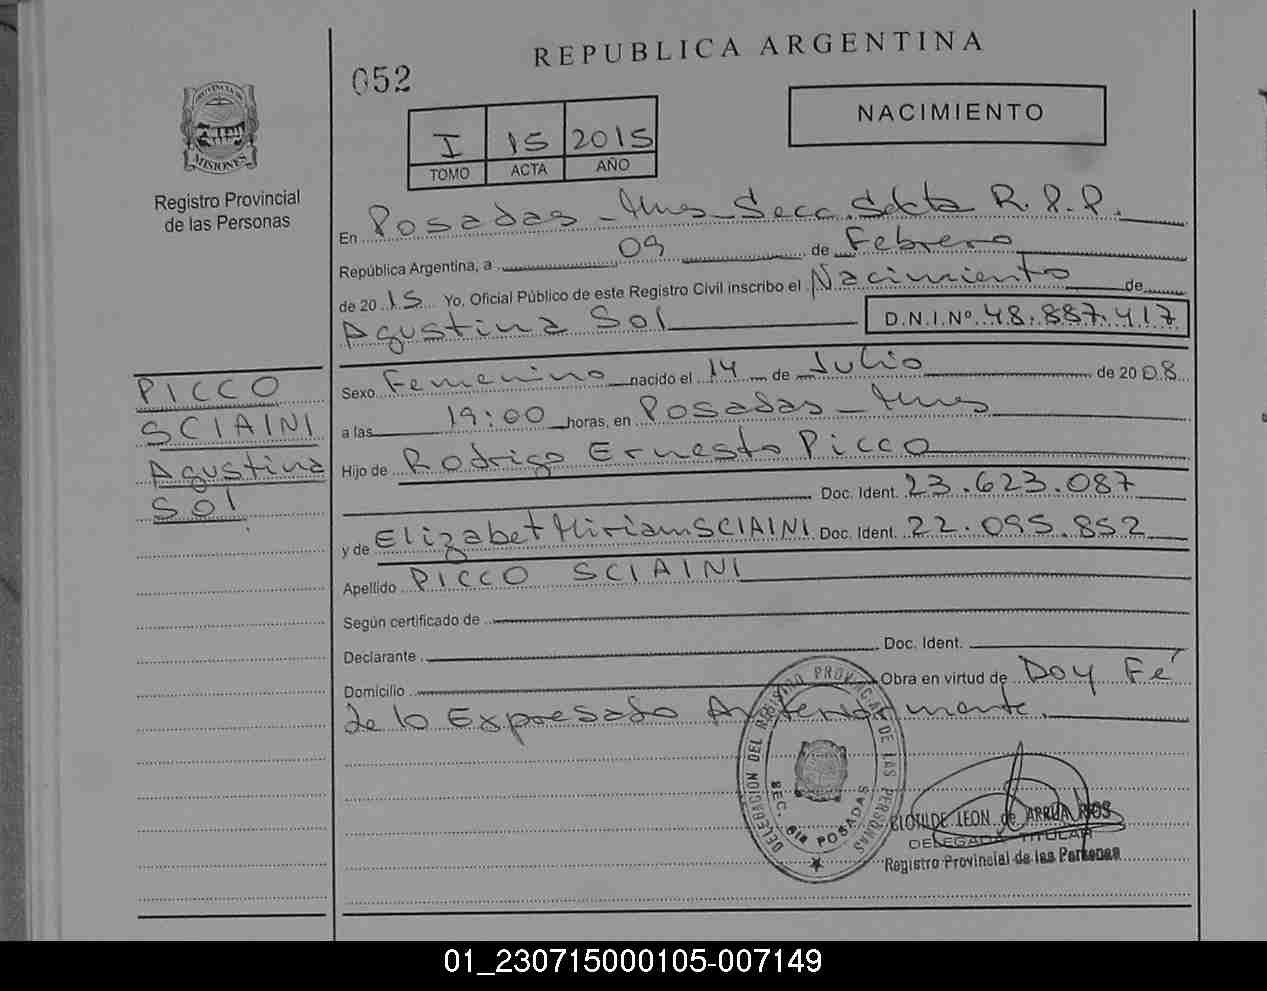 REPUBLICA ARGENTINA
052
NACIMIENTO
I 15 2015
TOMO ACTA AÑO
PROVINCIA DE
MISIONES
Registro Provincial
de las Personas
En Posadas - Mnes - Secc. Sexta R.P.P.
República Argentina, a 09 de Febrero
de 2015 Yo, Oficial Público de este Registro Civil inscribo el Nacimiento de
Agustina Sol D.N.I.Nº 48.887.417
PICCO
SCIAINI
Agustina
Sol
Sexo Femenino nacido el 14 de Julio de 2008
a las 19:00 horas, en Posadas - Mnes
Hijo de Rodrigo Ernesto Picco
Doc. Ident. 23.623.087
y de Elizabet Miriam SCIAINI Doc. Ident. 22.095.852
Apellido PICCO SCIAINI
Según certificado de
Declarante Doc. Ident.
Domicilio Obra en virtud de Doy Fé
de lo Expresado Anteriormente.
DELEGACION DEL REGISTRO PROVINCIAL DE LAS PERSONAS
SEC. 6ta POSADAS
CLOTILDE LEON de ARRUA RIOS
DELEGADA TITULAR
Registro Provincial de las Personas
01_230715000105-007149